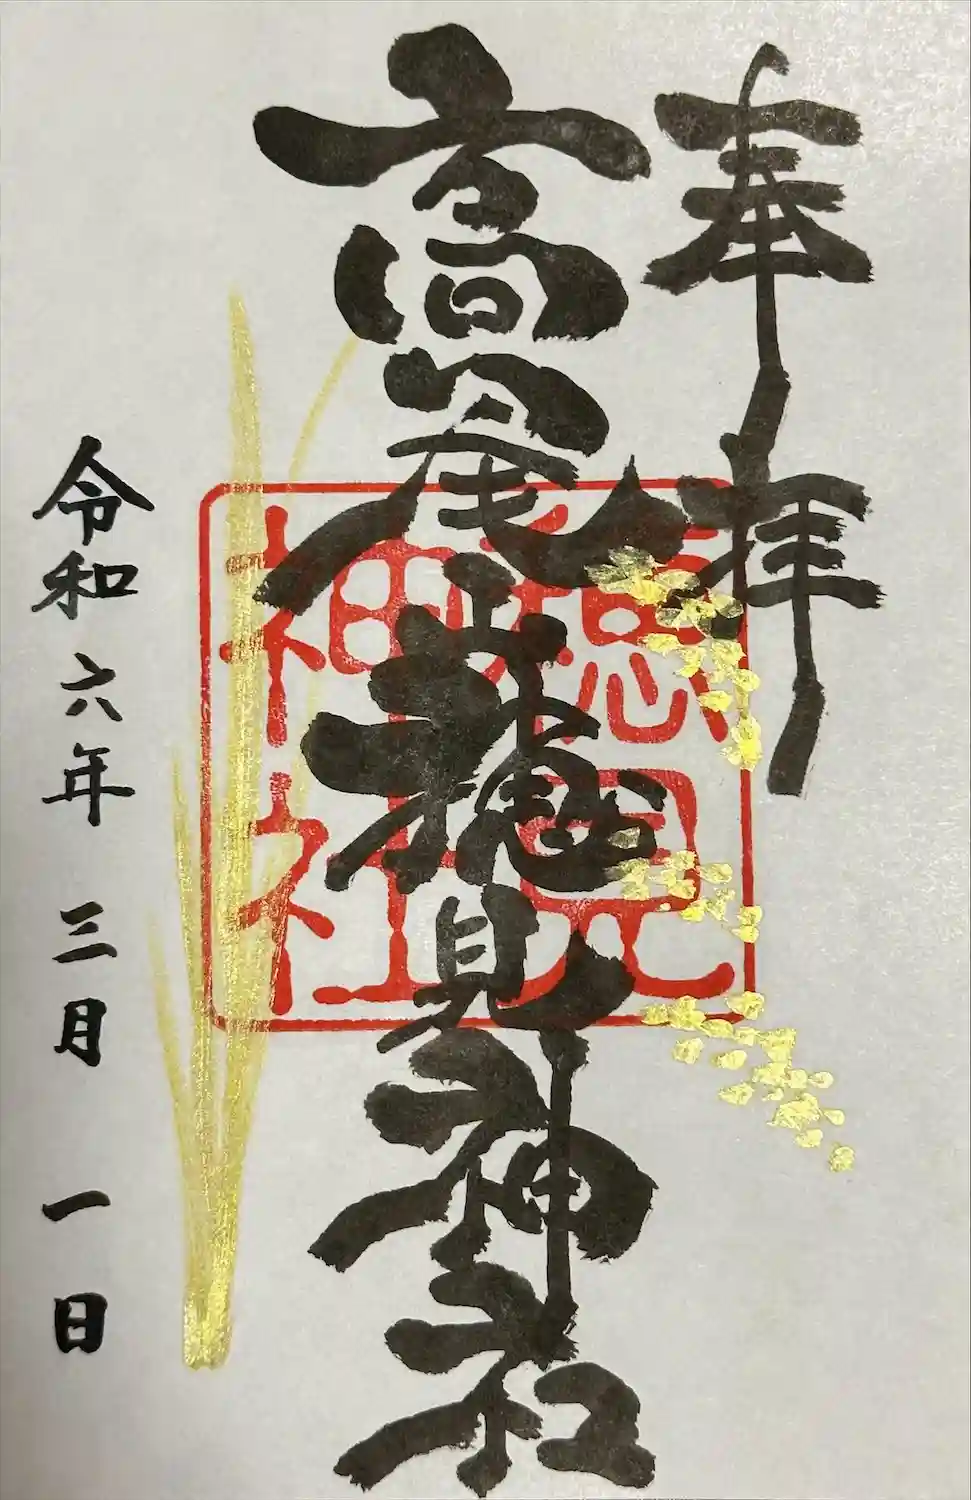 奉拝
高尾山穂見神社
穂見
神社
令和六年 三月 一日